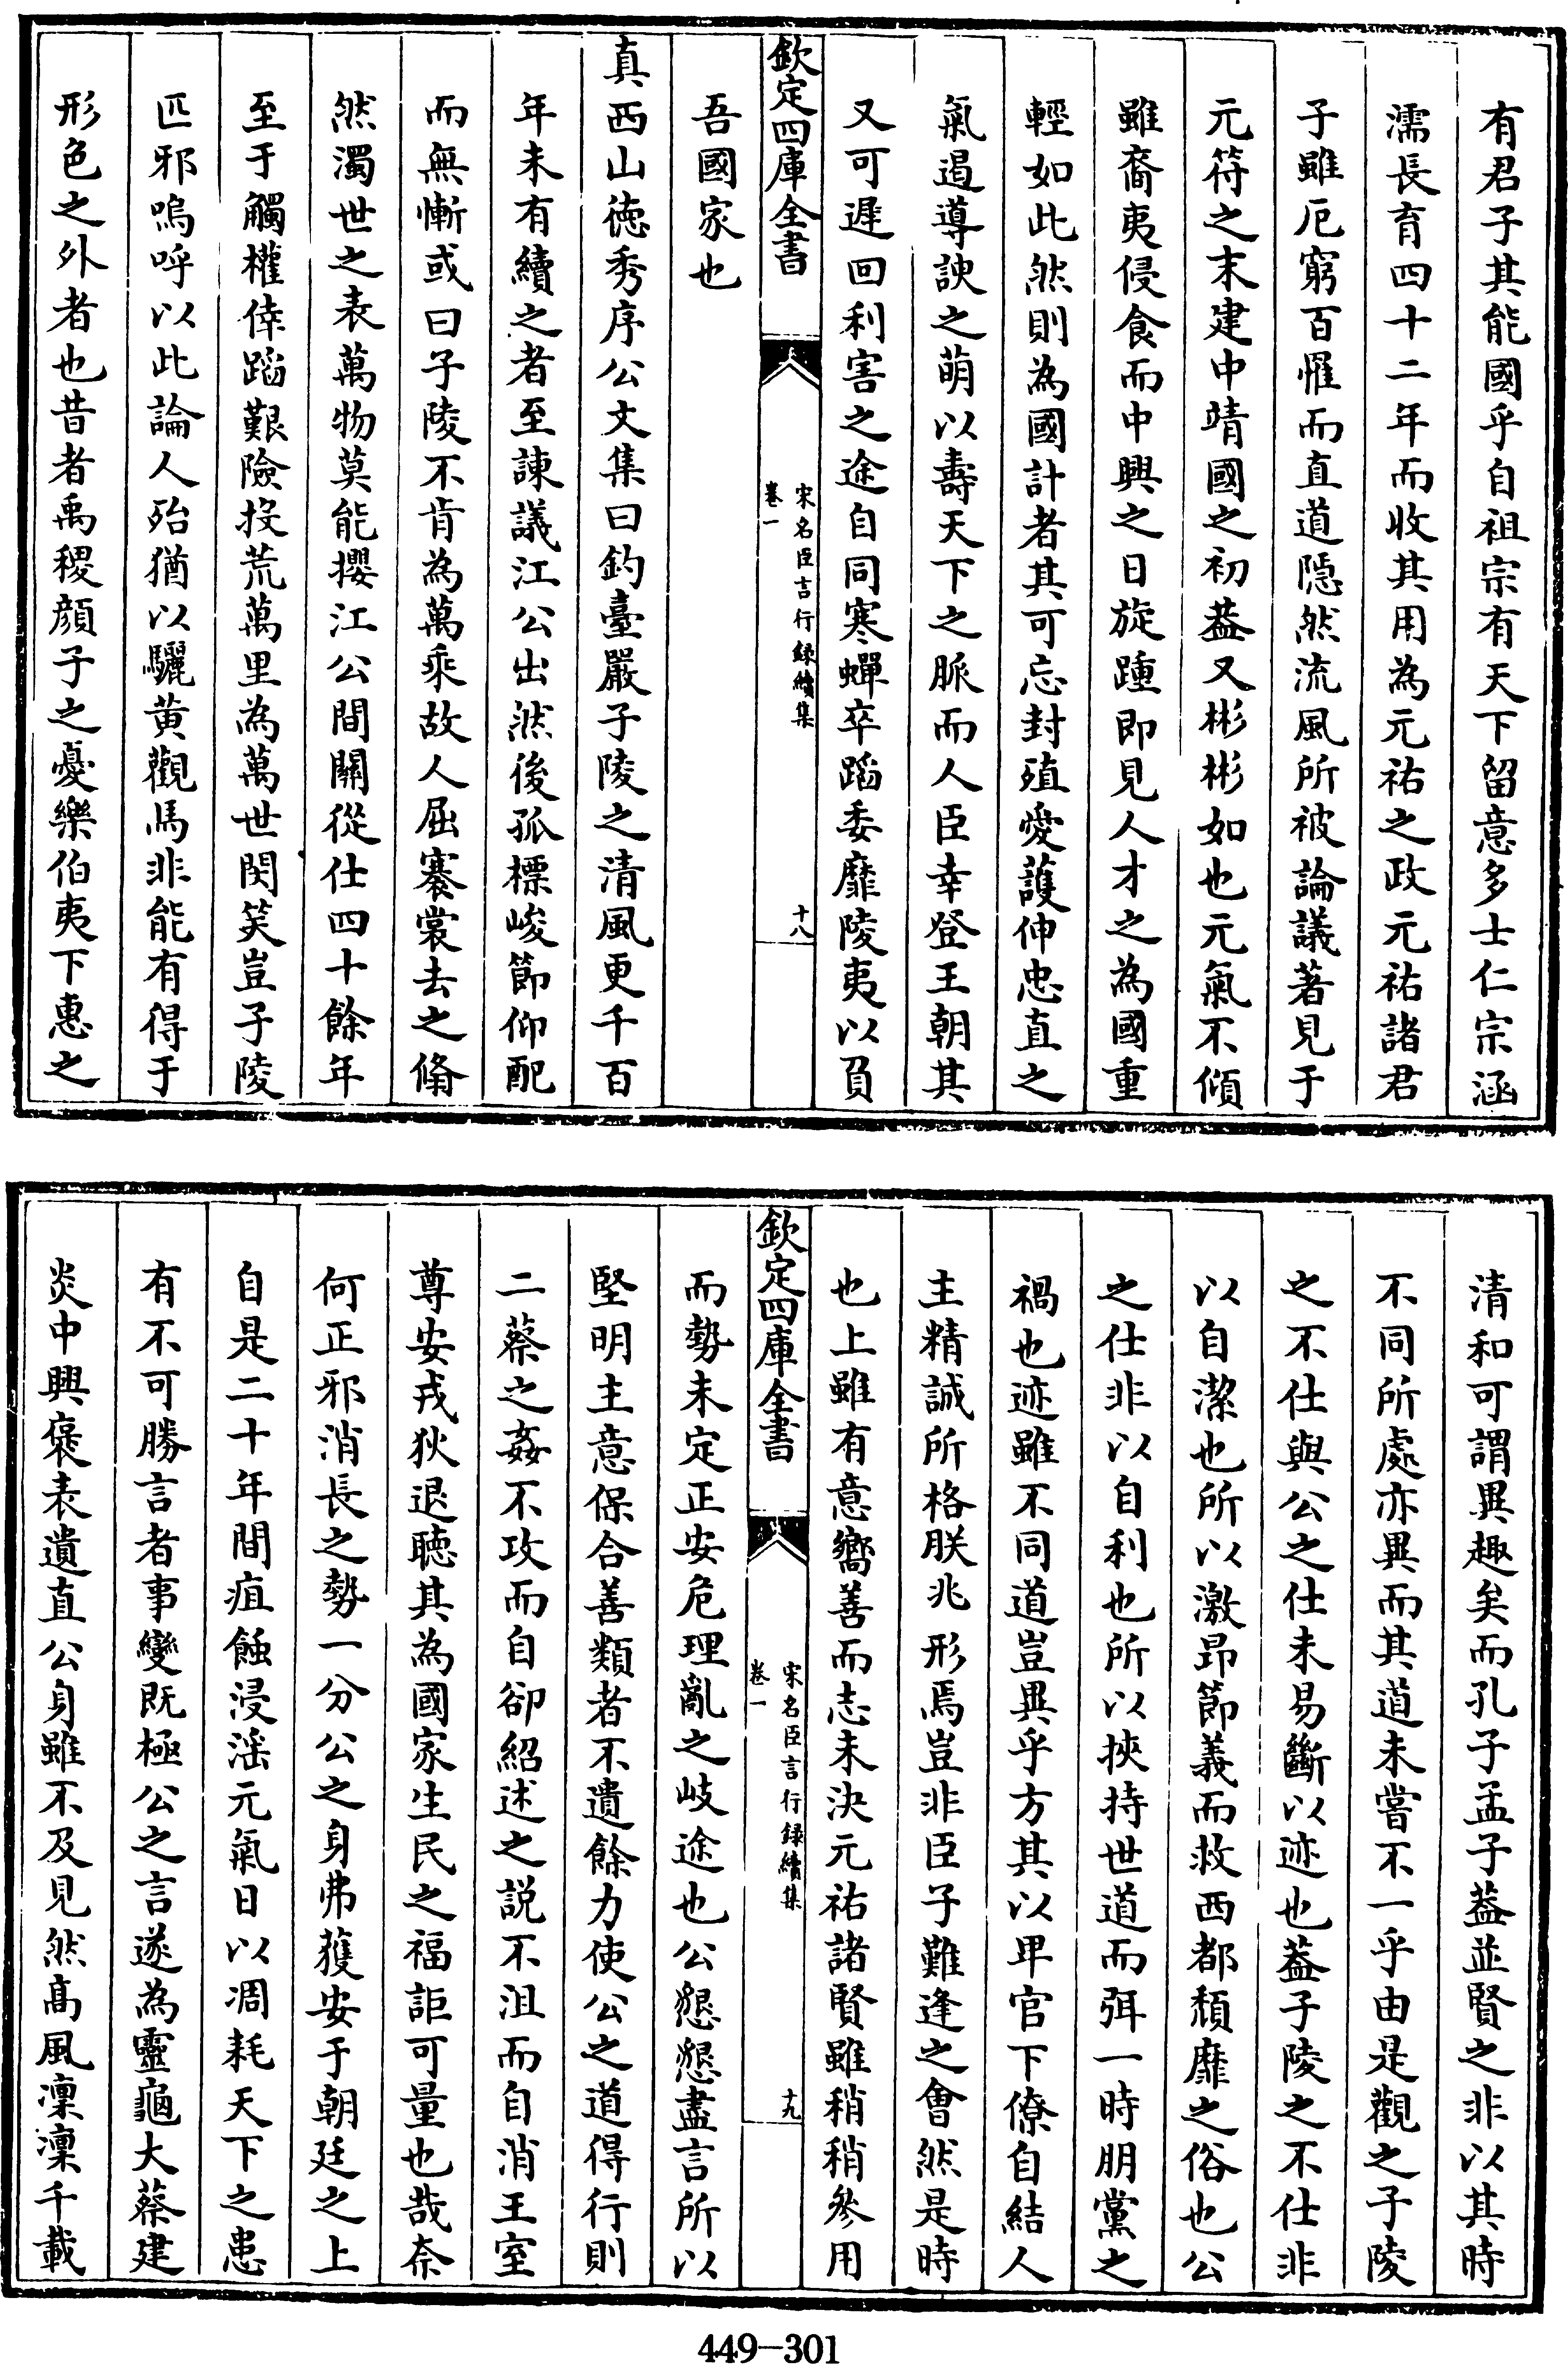 有君子其能國乎自祖宗有天下留意多士仁宗涵
濡長育四十二年而收其用為元祐之政元祐諸君
子雖厄窮百罹而直道隠然流風所被論議著見于
元符之末建中靖國之初葢又彬彬如也元氣不傾
雖裔夷侵食而中興之日旋踵即見人才之為國重
輕如此然則為國計者其可忘封殖愛護伸忠直之
氣遏導諛之萌以壽天下之脈而人臣幸登王朝其
又可遲回利害之途自同寒蟬卒蹈委靡陵夷以負
欽定四庫全書
宋名臣言行録續集
卷一
十八
吾國家也
真西山徳秀序公文集曰釣臺嚴子陵之清風更千百
年未有續之者至諫議江公出然後孤標峻節仰配
而無慚或曰子陵不肯為萬乘故人屈褰裳去之翛
然濁世之表萬物莫能攖江公間關從仕四十餘年
至于觸權倖蹈艱險投荒萬里為萬世閔笑豈子陵
匹邪嗚呼以此論人殆猶以驪黄觀馬非能有得于
形色之外者也昔者禹稷顔子之憂樂伯夷下惠之
清和可謂異趣矣而孔子孟子葢並賢之非以其時
不同所處亦異而其道未嘗不一乎由是觀之子陵
之不仕與公之仕未易斷以迹也葢子陵之不仕非
以自潔也所以激昂節義而救西都頽靡之俗也公
之仕非以自利也所以挾持世道而弭一時朋黨之
禍也迹雖不同道豈異乎方其以卑官下僚自結人
主精誠所格朕兆形焉豈非臣子難逢之會然是時
也上雖有意嚮善而志未決元祐諸賢雖稍稍參用
欽定四庫全書
宋名臣言行録續集
卷一
十九
而勢未定正安危理亂之岐途也公懇懇盡言所以
堅明主意保合善類者不遺餘力使公之道得行則
二蔡之姦不攻而自卻紹述之説不沮而自消王室
尊安戎狄退聴其為國家生民之福詎可量也哉奈
何正邪消長之勢一分公之身弗獲安于朝廷之上
自是二十年間疽蝕浸滛元氣日以凋耗天下之患
有不可勝言者事變既極公之言遂為靈龜大蔡建
炎中興褒表遺直公身雖不及見然髙風凜凜千載
449-301